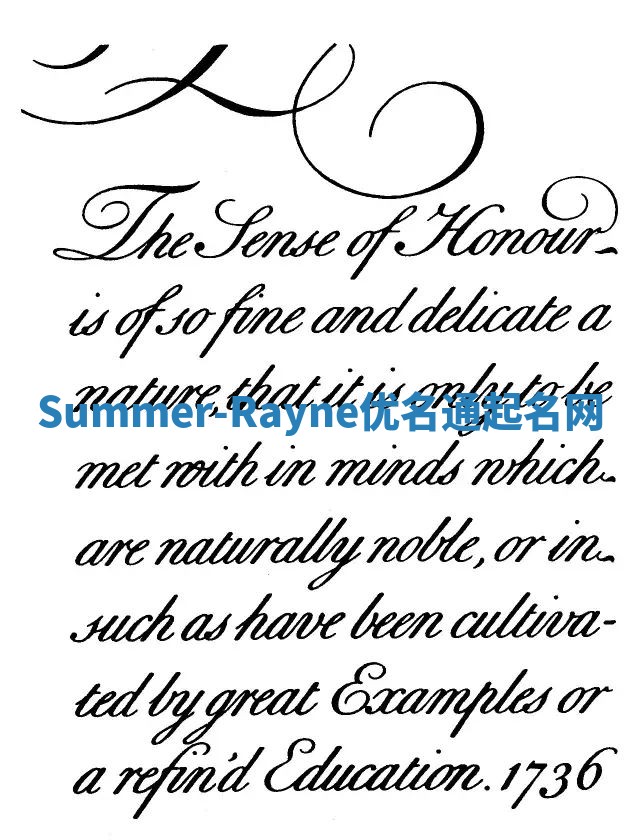 The Sense of Honour
is of so fine and delicate a
nature, that it is only to be
Summer-Rayne优名通起名网
met with in minds which
are naturally noble, or in
such as have been cultiva-
ted by great Examples or
a refin'd Education. 1736